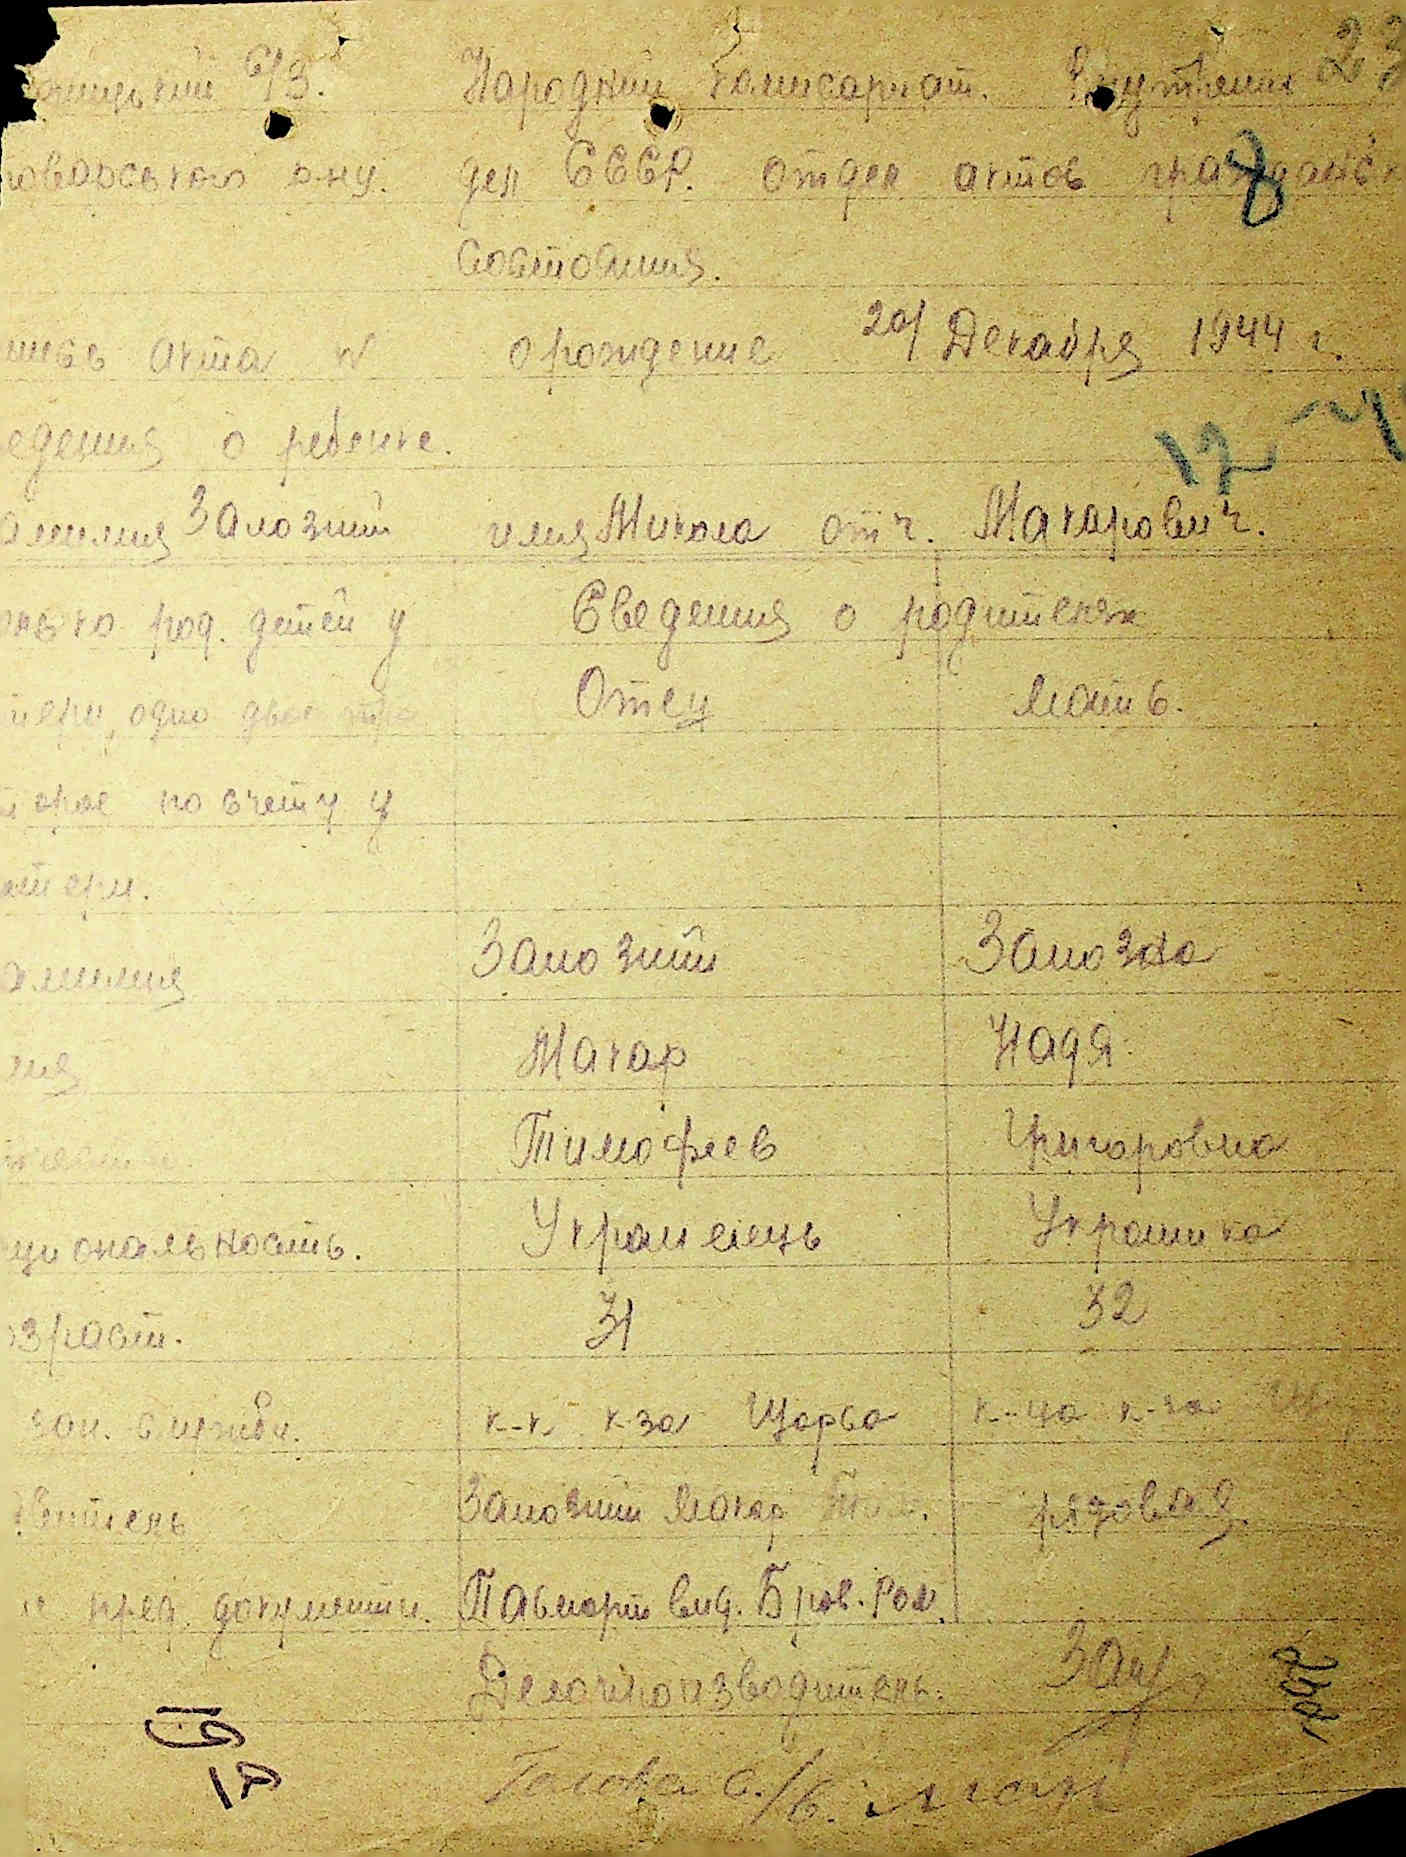 С/З. Народний комисариат. Внутренн 23
оварського р-ну. дел СССР. отдел актов граждански 8
состояния.
акта N о рождение 20/ Декабря 1944 г.
едения о ребенке. 12
амилия Залозний имя Микола отч. Макарович.
род. детей у Сведения о родителях
тери, одно двое тро Отец мать.
торое по счету у
атери.
амилия Залозний Залозна
мя Макар Надя
Тимофеев Григоровна
циональность. Украинець Украинка
озраст. 31 32
зан. служби. к-к к-за Щорса к-ца к-за Щ
Залозний Макар Тим. рядовая
пред. документи. Паспорт вид. Бров. Ром.
Делопроизводитель: Зал
Голова С./б.